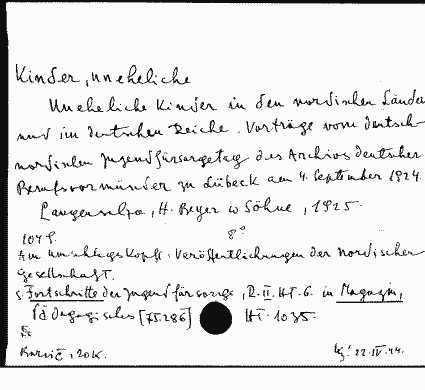 Kinder, uneheliche
Uneheliche Kinder in den nordischen Länder
und im deutschen Reiche. Vorträge vom deutsch-
nordischen Jugendfürsorgetag des Archivs deutscher
Berufsvormünder zu Lübeck am 4. September 1924.
Langensalza, H. Beyer u Söhne, 1925.
104 S. 8°
Am Umschlagskopfe: Veröffentlichungen der Nordischen
Gesellschaft.
S. Fortschritte der Jugendfürsorge, R. II. Ht. 6. in Magazin,
Pädagogisches [75.286] Ht. 1035.
22. IV. 44.